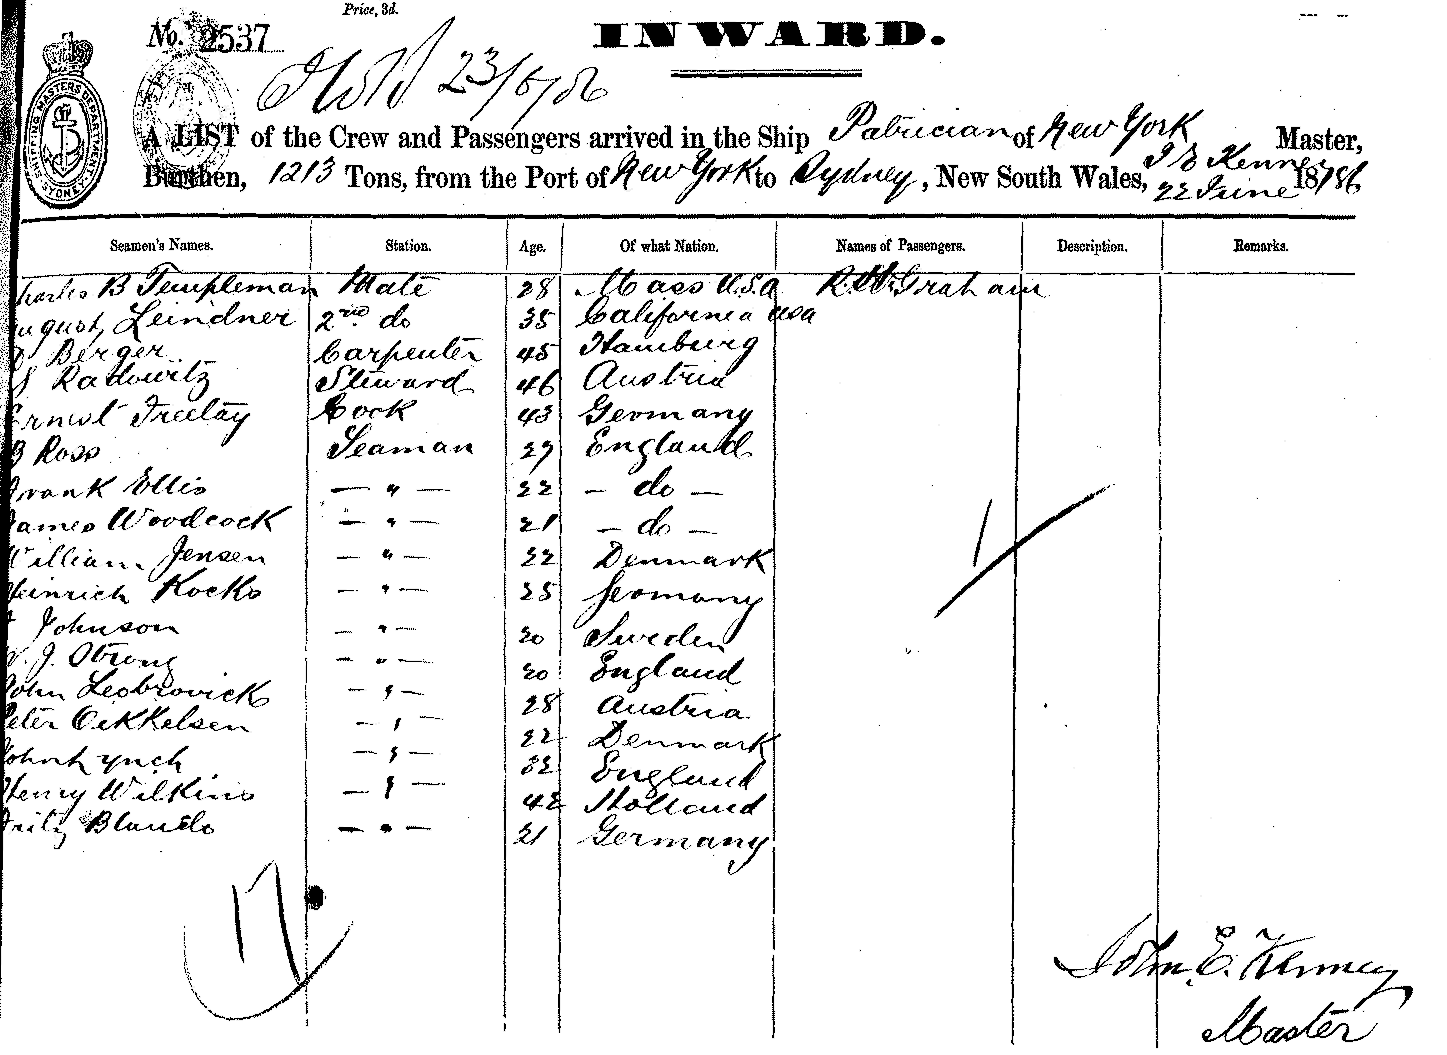 Price, 3d.
No. 2537
INWARD.
23/6/86
SHIPPING MASTERS DEPARTMENT
A LIST of the Crew and Passengers arrived in the Ship Patrician of New York Master,
Burthen, 1213 Tons, from the Port of New York to Sydney, New South Wales, J E Kenney 22 June 18186
Seamen's Names. Station. Age. Of what Nation. Names of Passengers. Description. Remarks.
Charles B Templeman Mate 28 Mass U.S.A R. W. Graham
August Leindner 2nd do 35 California usa
Berger Carpenter 45 Hamburg
Radowitz Steward 46 Austria
Ernest Freetay Cook 43 Germany
B Ross Seaman 27 England
Frank Ellis — " — 22 — do —
James Woodcock — " — 21 — do —
William Jensen — " — 22 Denmark
Heinrich Kocks — " — 25 Germany
Johnson — " — 20 Sweden
J. Strong — " — 20 England
John Lesbrovick — " — 28 Austria
Peter Oikkelsen — " — 22 Denmark
John Lynch — " — 32 England
Henry Wilkins — " — 42 Holland
Fritz Blando — " — 21 Germany
1
17
John E. Kenney
Master